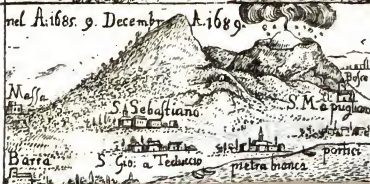 nel A: 1685. 9. Decembr A. 1689.
Bosco
Massa
S. Sebastiano
S. M. a pugliano
Barra
S. Gio: a Teduccio
pietra bianca
portici